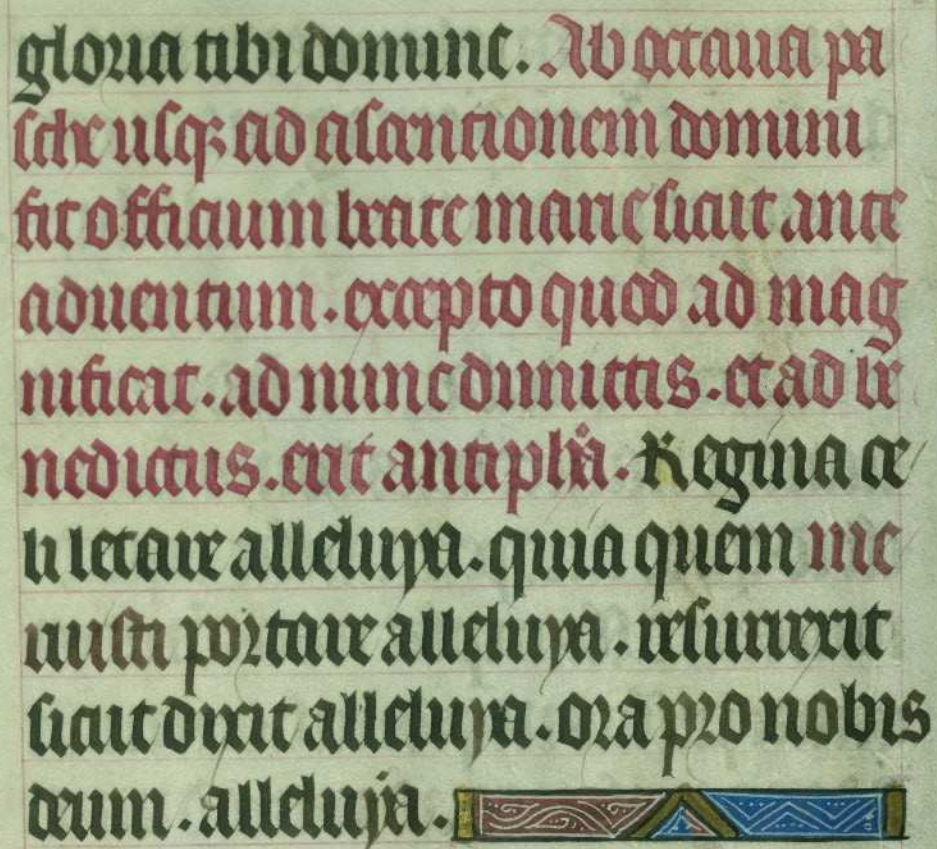 gloria tibi domine. Ab octaua pa
sche usq; ad ascentionem domini
fit officium beate marie sicut ante
aduentum. excepto quod ad mag
nificat. ad nunc dimittis. et ad be
nedictus. erit antiph̄a. Regina ce
li letare alleluya. quia quem me
ruisti portare alleluya. resurrexit
sicut dixit alleluya. ora pro nobis
deum. alleluya.